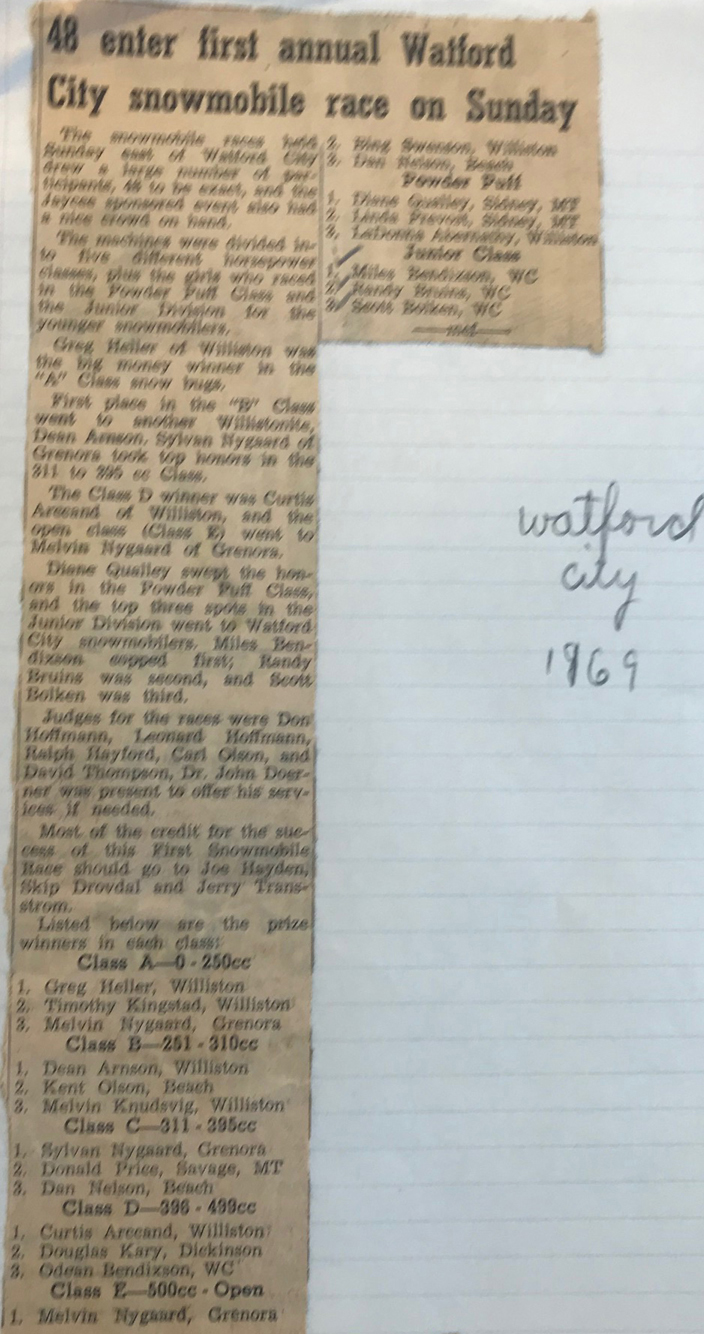 48 enter first annual Watford
City snowmobile race on Sunday
The snowmobile races held
Sunday east of Watford City
drew a large number of par-
ticipants, 48 to be exact, and the
Jaycee sponsored event also had
a nice crowd on hand.
The machines were divided in-
to five different horsepower
classes, plus the girls who raced
in the Powder Puff Class and
the Junior Division for the
younger snowmobilers.
Greg Heller of Williston was
the big money winner in the
"A" Class snow bugs.
First place in the "B" Class
went to another Willistonite,
Dean Arnson. Sylvan Nygaard of
Grenora took top honors in the
311 to 395 cc Class.
The Class D winner was Curtis
Arecand of Williston, and the
open class (Class E) went to
Melvin Nygaard of Grenora.
Diane Qualley swept the hon-
ors in the Powder Puff Class,
and the top three spots in the
Junior Division went to Watford
City snowmobilers. Miles Ben-
dixson copped first; Randy
Bruins was second, and Scott
Bolken was third.
Judges for the races were Don
Hoffmann, Leonard Hoffmann,
Ralph Hayford, Carl Olson, and
David Thompson, Dr. John Doer-
ner was present to offer his serv-
ices if needed.
Most of the credit for the suc-
cess of this First Snowmobile
Race should go to Joe Hayden,
Skip Drovdal and Jerry Trans-
strom.
Listed below are the prize
winners in each class:
Class A—0 - 250cc
1. Greg Heller, Williston
2. Timothy Kingstad, Williston
3. Melvin Nygaard, Grenora
Class B—251 - 310cc
1. Dean Arnson, Williston
2. Kent Olson, Beach
3. Melvin Knudsvig, Williston
Class C—311 - 395cc
1. Sylvan Nygaard, Grenora
2. Donald Price, Savage, MT
3. Dan Nelson, Beach
Class D—396 - 499cc
1. Curtis Arecand, Williston
2. Douglas Kary, Dickinson
3. Odean Bendixson, WC
Class E—500cc - Open
1. Melvin Nygaard, Grenora
2. Swenson, Williston
3. Dan Nelson, Beach
Powder Puff
1. Diane Qualley, Sidney, MT
2. Linda Prevost, Sidney, MT
3. LaDonna Abernathy, Williston
Junior Class
1. Miles Bendixson, WC
2. Randy Bruins, WC
3. Scott Bolken, WC
watford
city
1969